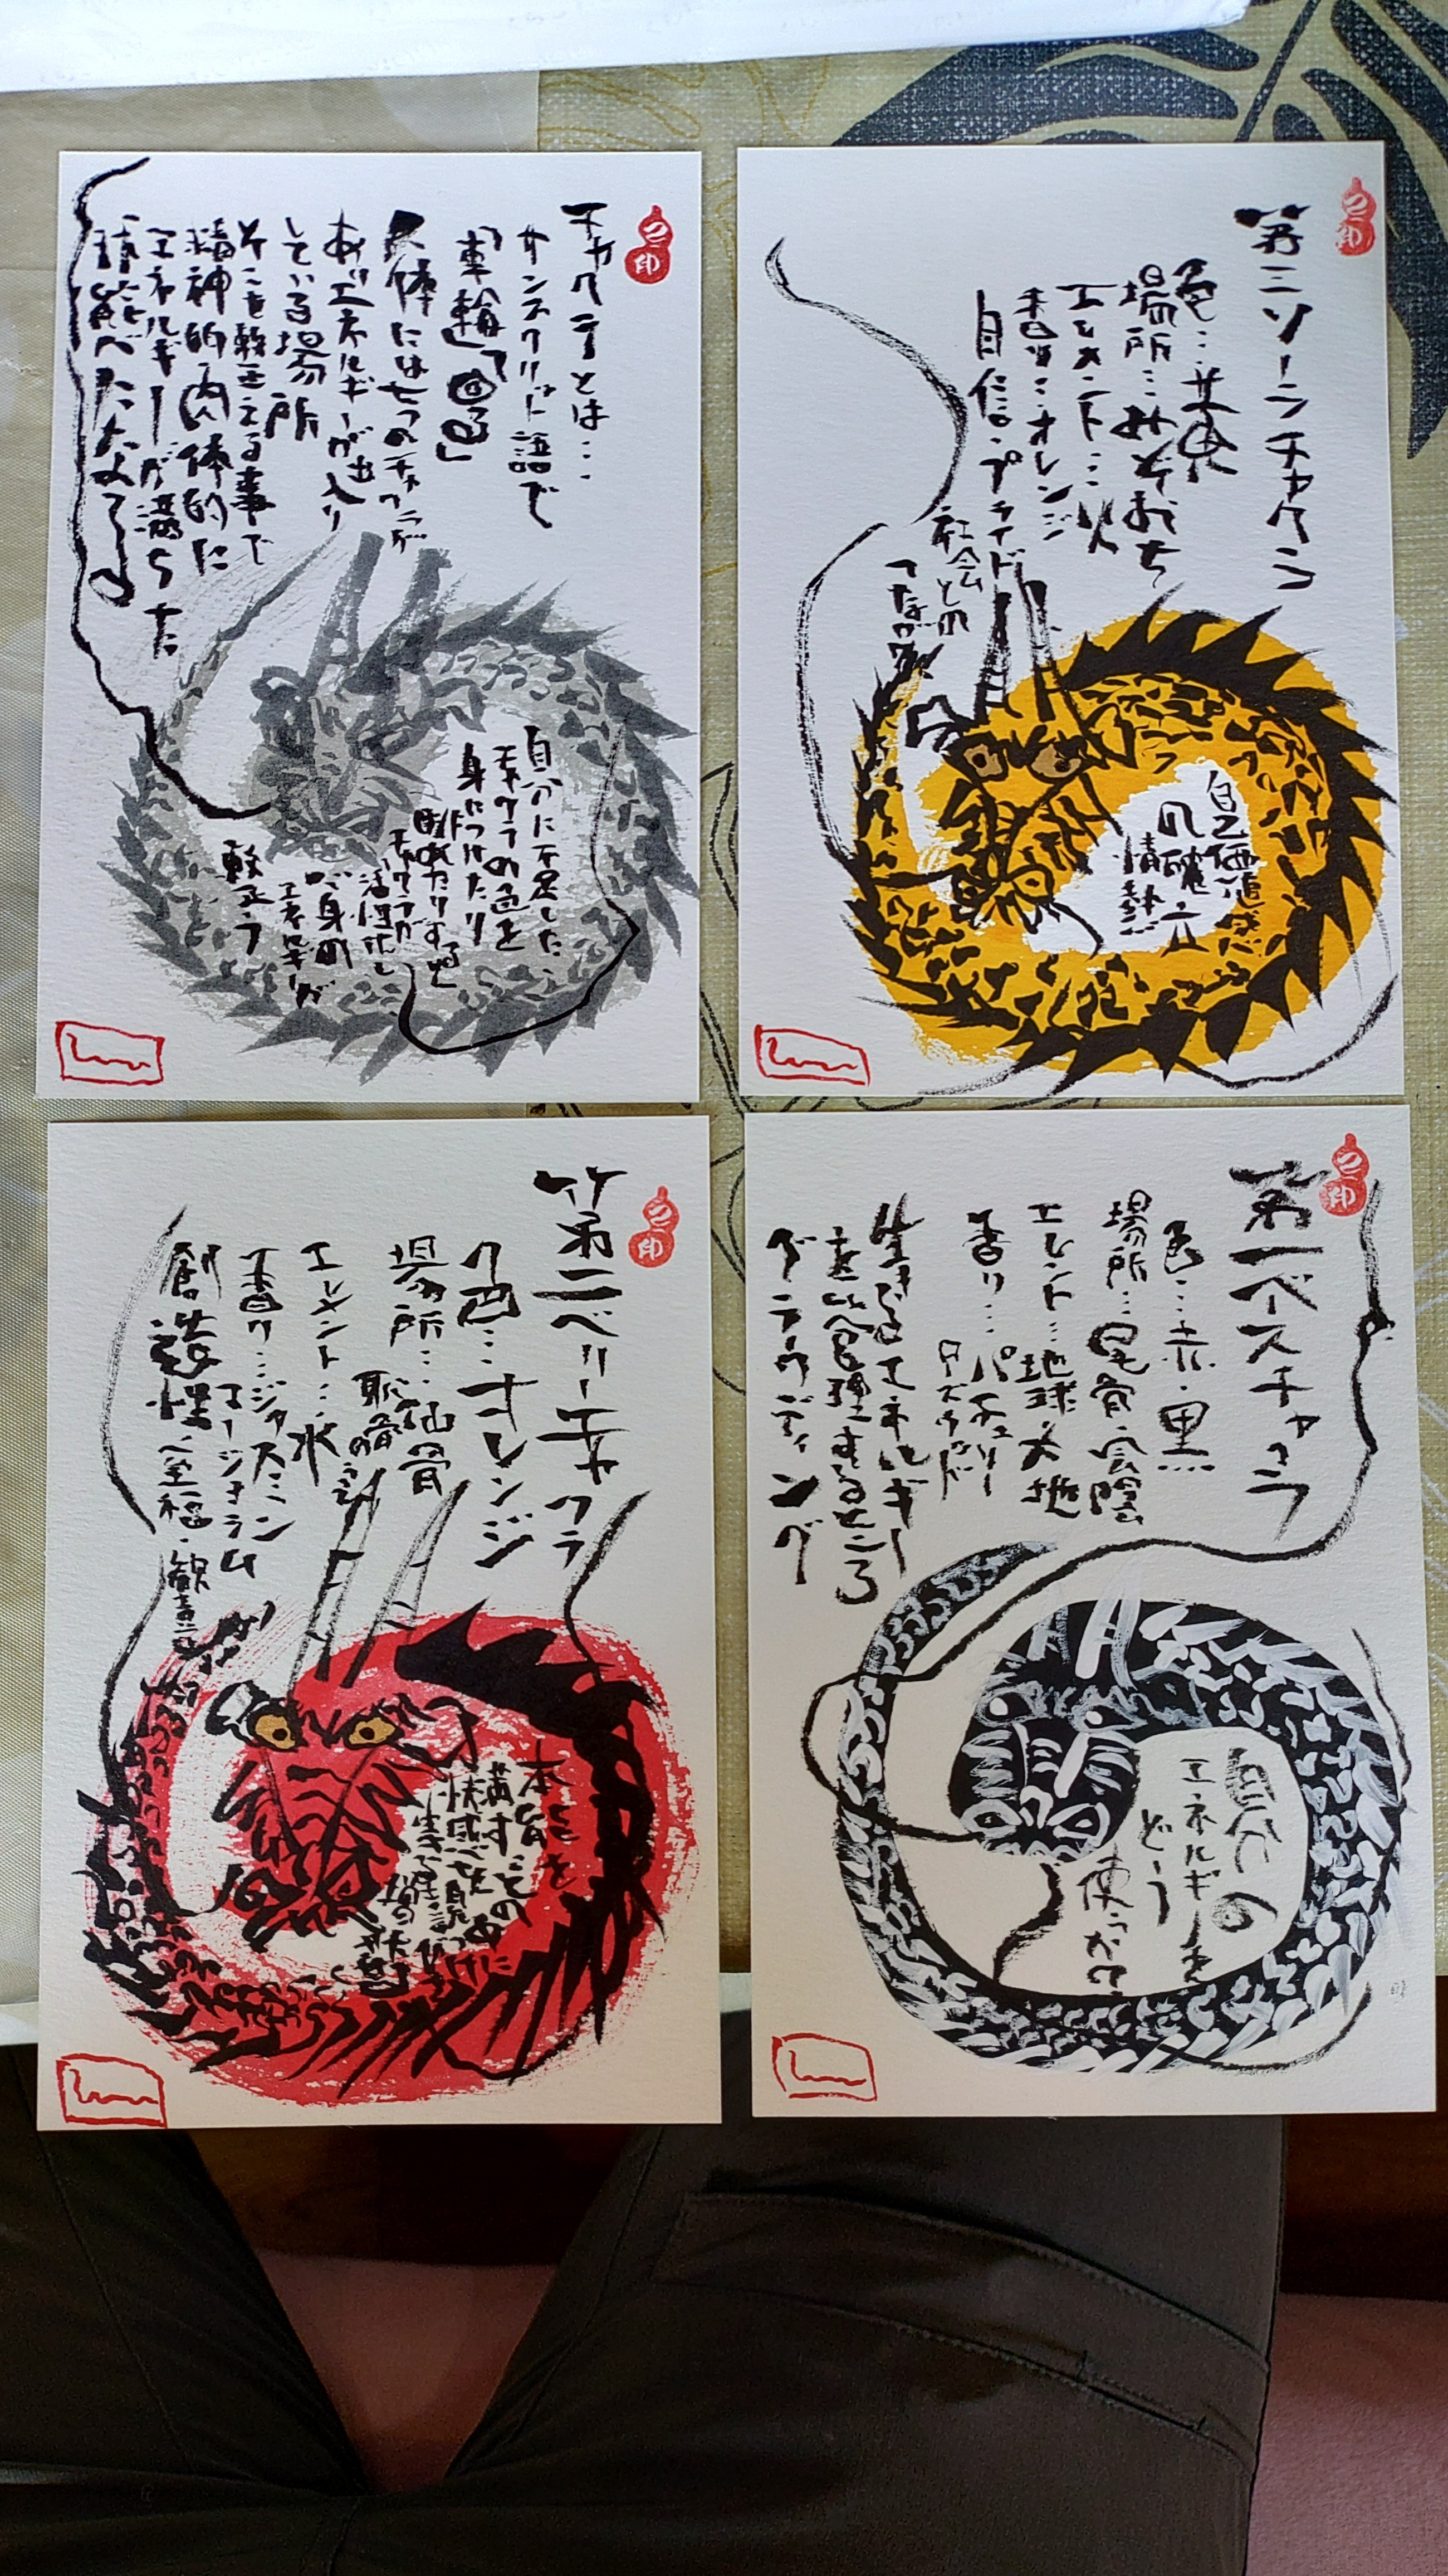 チャクラとは…
サンスクリット語で
「車輪」「回る」
人体には七つのチャクラが
あり エネルギーが出入り
している場所
そこを整える事で
精神的 肉体的に
エネルギーが満ちた
状態へ
自分に不足した
チャクラの色を
身につけたり
眺めたりすると
チャクラが
活性化し
心身の
エネルギーが
整う
第三ソーラチャクラ
色…黄
場所…みぞおち
エレメント…火
香り…オレンジ
自信・プライド
社会との
つながり
自己価値感
の確立
情熱
第二ベリーチャクラ
色…オレンジ
場所…仙骨
恥骨のうえ
エレメント…水
香り…ジャスミン
マージョラム
創造性・至福・歓喜
本能を
満すことの
快感を
第一ベースチャクラ
色…赤・黒
場所…尾骨・会陰
エレメント…地球・大地
香り…パチュリー
ローズウッド
生きるエネルギー
を管理するところ
グラウディング
自分の
エネルギーを
どう
使うか?